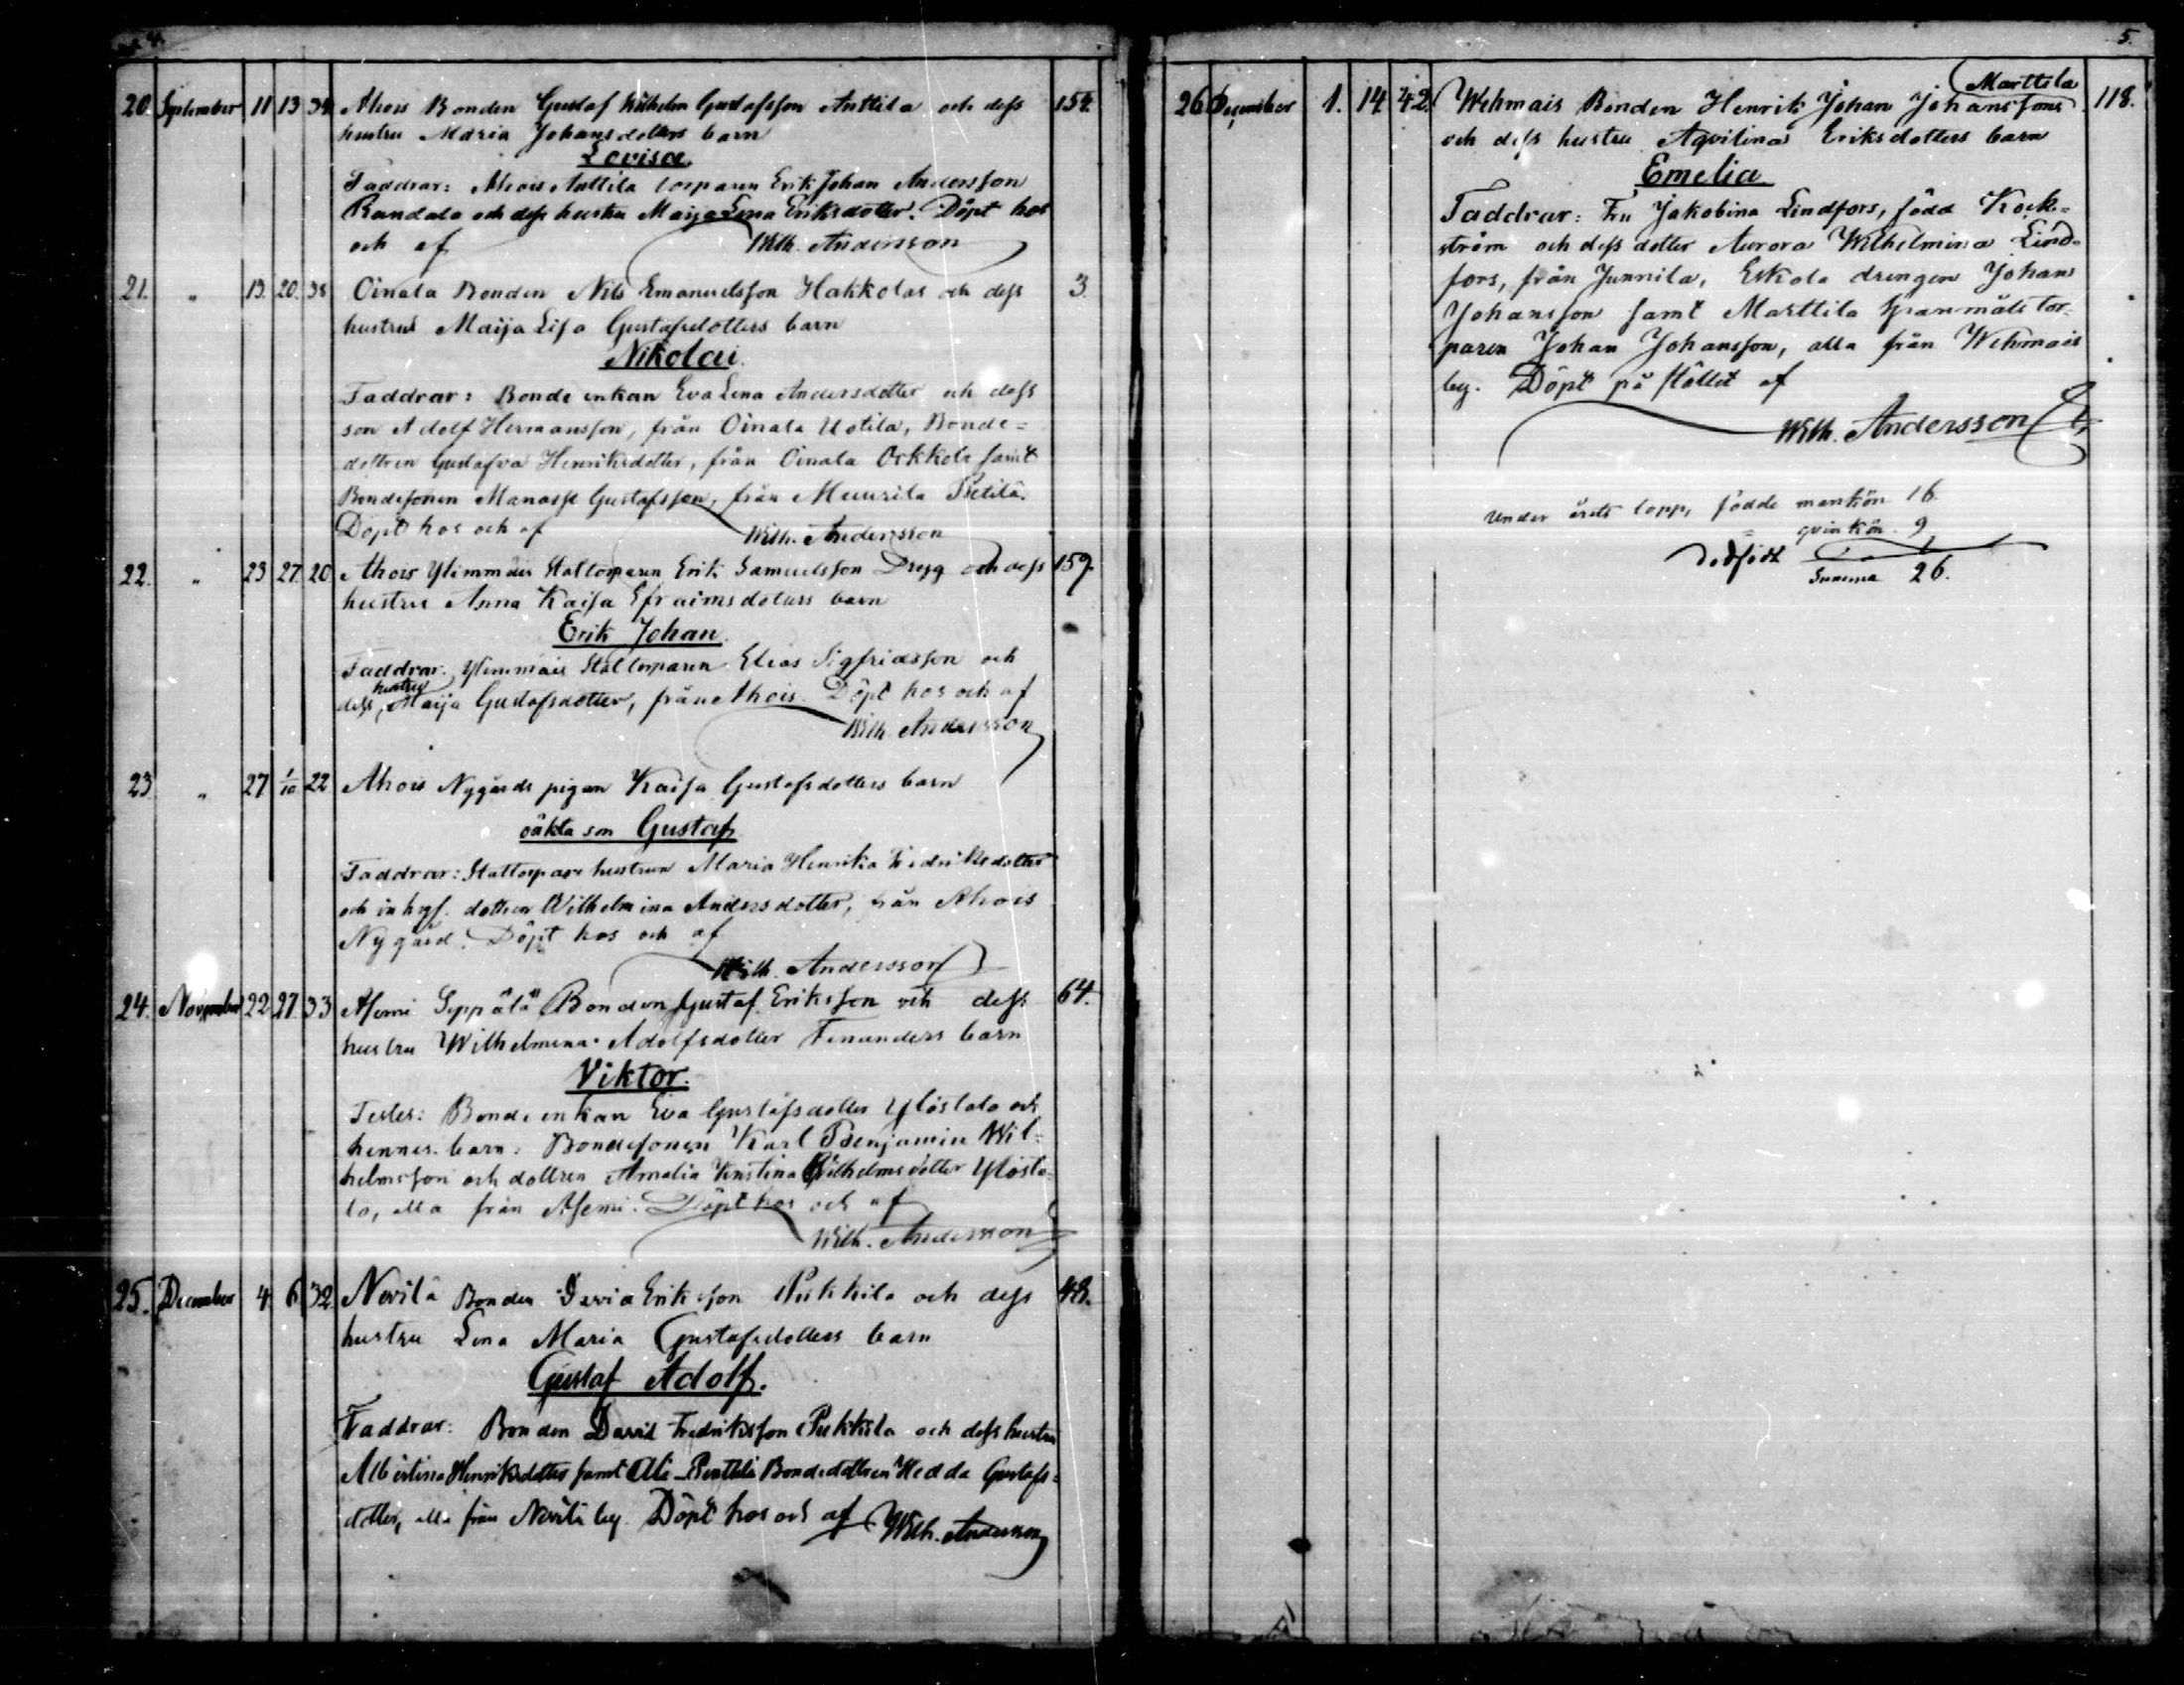 4.
20. September 11 13 34 Ahois Bonden Gustaf Wilhelm Gustafsson Anttila och dess 154.
hustru Maria Johansdotters barn
Lovisa.
Faddrar: Ahois Anttila torparen Erik Johan Andersson
Randala och dess hustru Maija Lena Eriksdotter. Döpt hos
och af Wilh. Andersson
21. " 13. 20. 38 Oinala Bonden Nils Emanuelsson Hakkolas och dess 3
hustrus Maija Lisa Gustafsdotters barn
Nikolai.
Faddrar: Bonde enkan Eva Lena Andersdotter och dess
son Adolf Hermansson, från Oinala Uotila, Bonde=
dottren Gustafva Henriksdotter, från Oinala Orkkola samt
Bondesonen Manasse Gustafsson, från Muurila Pietilä.
Döpt hos och af Wilh. Andersson
22. " 23 27. 20 Ahois Ylimmäis Stattorparen Erik Samuelsson Dregg och dess 159.
hustru Anna Kaisa Efraimsdotters barn
Erik Johan.
Faddrar: Ylimmäis Stattorparen Elias Sigfridsson och
dess hustru Maija Gustafsdotter, från Ahois. Döpt hos och af
Wilh. Andersson
23 " 27 1/10 22 Ahois Nygårds pigan Kaisa Gustafsdotters barn
oäkta son Gustaf
Faddrar: Stattorpare hustrun Maria Henrika Fredriksdotter
och inhys. dottren Wilhelmina Andersdotter, från Ahois
Nygård. Döpt hos och af
Wilh. Andersson
24. November 22 27. 33 Asemi Seppälä Bonden Gustaf Eriksson och dess 64.
hustru Wilhelmina Adolfsdotter Fenanders barn
Viktor.
Testes: Bonde enkan Eva Gustafsdotter Ylöstalo och
hennes barn: Bondesonen Karl Benjamin Wil=
helmsson och dottren Amalia Kristina Wilhelmsdotter Ylösta=
lo, alla från Asemi. Döpt hos och af
Wilh. Andersson
25. December 4 6 32 Nevilä Bonden David Eriksson Pukkila och dess 48.
hustru Lena Maria Gustafsdotters barn
Gustaf Adolf.
Faddrar: Bonden David Fredriksson Pukkila och dess hustru
Albertina Henriksdotter samt Ali-Penttilä Bondedottren Hedda Gustafs=
dotter, alla från Nevilä by. Döpt hos och af Wilh. Andersson
5.
26 December 1. 14. 42. Wehmais Bonden Henrik Johan Johanssons Marttila 118.
och dess hustru Aqvilinas Eriksdotters barn
Emelia
Faddrar: Fru Jakobina Lindfors, född Kock=
ström och dess dotter Aurora Wilhelmina Lind=
fors, från Junnila, Eskola drengen Johan
Johansson samt Marttila Granmäts tor=
paren Johan Johansson, alla från Wehmais
by. Döpt på stället af
Wilh. Andersson
Under årets lopp, födde mankön 16.
qvinkön 9
dödfödt 1
Summa 26.